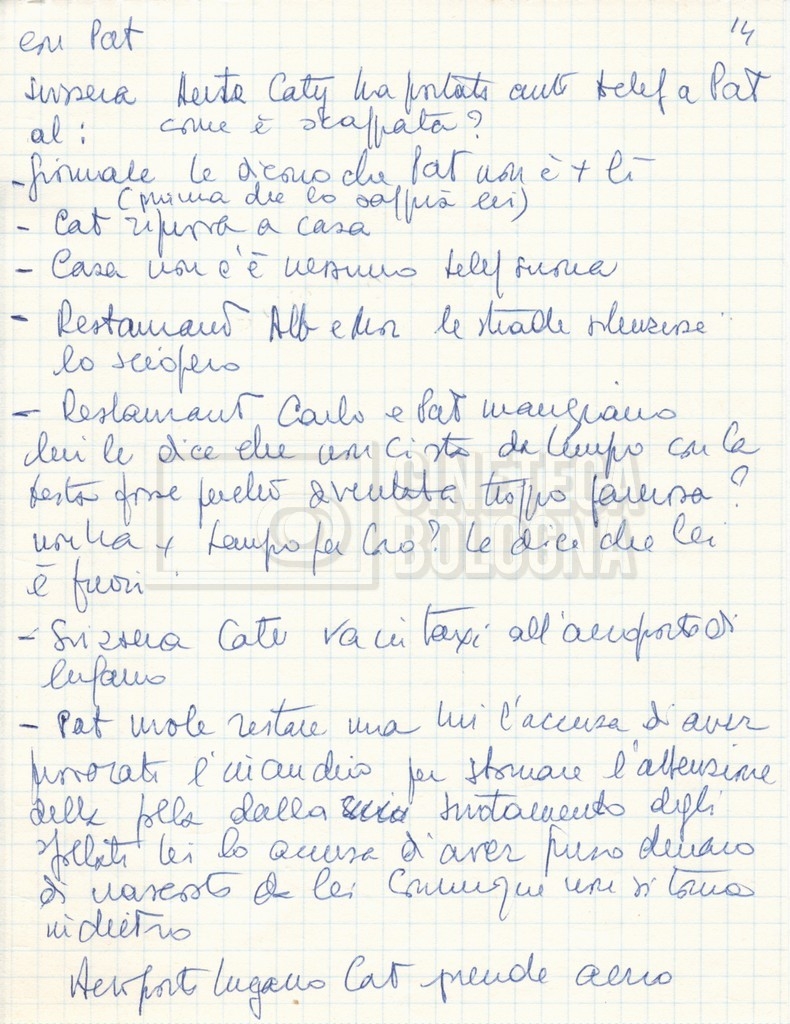 con Pat
14
Svizzera Aiuta Caty ha portato auto telef a Pat
al: come è scappata?
- Giornale le dicono che Pat non è + lì
(prima che lo sappia lei)
- Cat riporta a casa
- Casa non c'è nessuno telef suona
- Restaurant Alb e dior le strade silenziose
lo sciopero
- Restaurant Carlo e Pat mangiano
lui le dice che non ci sta da tempo con la
testa forse perché diventata troppo famosa?
non ha + tempo per Cro? Le dice che lei
è fuori
- Svizzera Cate va in taxi all'aeroporto di
Lugano
- Pat vuole restare ma lui l'accusa d'aver
provocato l'incendio per stornare l'attenzione
della folla dalla svuotamento degli
sfollati lei lo accusa d'aver preso denaro
di nascosto da lei Comunque non si torna
indietro
Aeroporto Lugano Cat prende aereo
CINETECA
BOLOGNA